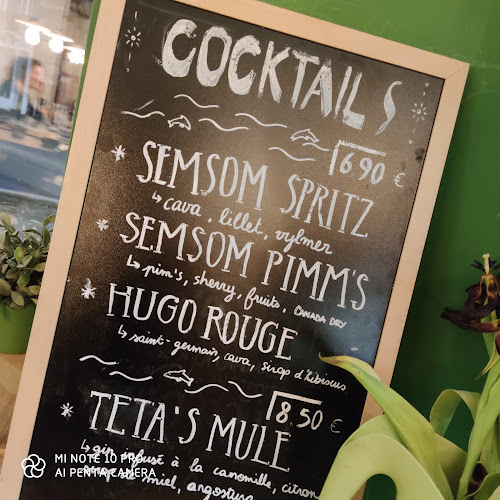 COCKTAILS
6.90 €
SEMSOM SPRITZ
cava, lillet, vylmer
SEMSOM PIMM'S
pim's, sherry, fruits, CANADA DRY
HUGO ROUGE
saint-germain, cava, sirop d'hibiscus
8.50 €
TETA'S MULE
gin infusé à la camomille, citron
miel, angostura
MI NOTE 10 PRO
AI PENTA CAMERA